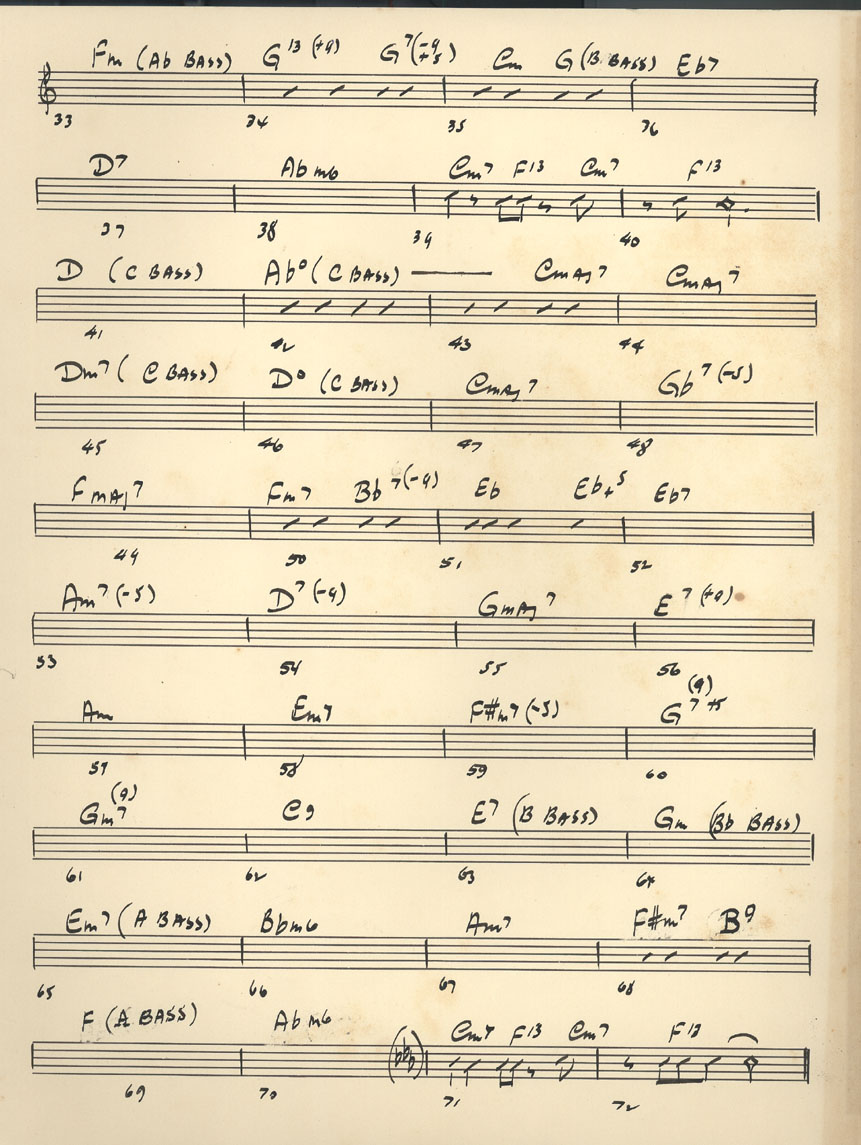 Fm (Ab BASS) G13 (+9) G7(-9 +5) Cm G (B BASS) Eb7
33 34 35 36
D7 Abm6 Cm7 F13 Cm7 F13
37 38 39 40
D (C BASS) Ab° (C BASS) Cmaj7 Cmaj7
41 42 43 44
Dm7 (C BASS) D° (C BASS) Cmaj7 Gb7 (-5)
45 46 47 48
Fmaj7 Fm7 Bb7(-9) Eb Eb+5 Eb7
49 50 51 52
Am7 (-5) D7 (-9) Gmaj7 E7 (+9)
53 54 55 56
Am Em7 F#m7 (-5) G7+5 (9)
57 58 59 60
Gm7 (9) C9 E7 (B BASS) Gm (Bb BASS)
61 62 63 64
Em7 (A BASS) Bbm6 Am7 F#m7 B9
65 66 67 68
F (A BASS) Abm6 Cm7 F13 Cm7 F13
69 70 71 72